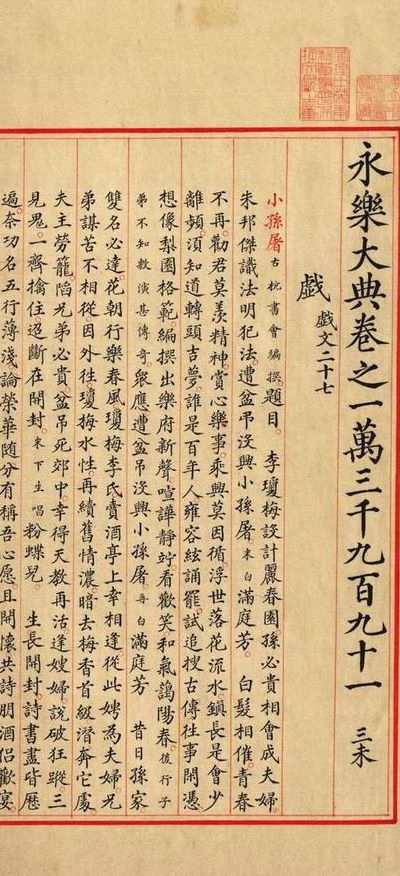 永樂大典卷之一萬三千九百九十一 三未
戲 戲文二十七
小孫屠 古杭書會編撰 題目 李瓊梅設計麗春園 孫必貴相會成夫婦
朱邦傑識法明犯法 遭盆吊沒興小孫屠 末白 滿庭芳 白髮相催 青春
不再 勸君莫羨精神 賞心樂事 乘興莫因循 浮世落花流水 鎮長是會少
離頻 須知道轉頭吉夢 誰是百年人 雍容絃誦罷 試追搜古傳 往事閒憑
想像梨園格範 編撰出樂府新聲 喧譁靜竚看歡笑 和氣靄陽春 後行子
弟不知敷演甚傳奇 衆應 遭盆吊沒興小孫屠 再白 滿庭芳 昔日孫家
雙名必達 花朝行樂春風 瓊梅李氏 賣酒亭上幸相逢 從此娉為夫婦 兄
弟謀苦不相從 因外往瓊梅水性 再續舊情濃 暗去梅香首級 潛奔它處
夫主勞籠 陷兄弟必貴 盆吊死郊中 幸得天教再活 逢嫂婦說破狂蹤 三
見鬼 一齊擒住 迢斷在開封 末下 生唱 粉蝶兒 生長開封 詩書盡皆歷
遍 奈功名五行薄淺 論榮華隨分有 稱吾心愿 且開懷共詩朋酒侶歡宴